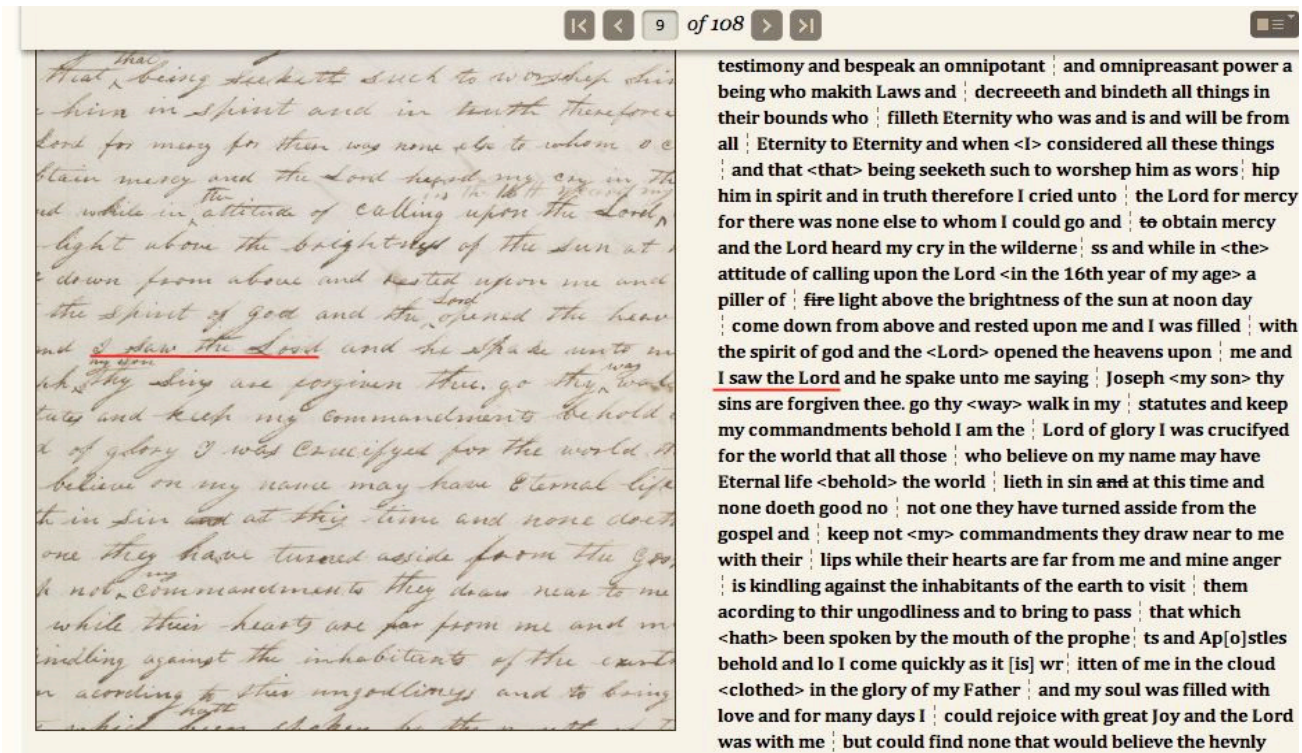 9 of 108
that
that being seeketh such to worshep him
him in spirit and in truth therefore
Lord for mercy for there was none else to whom I c
btain mercy and the Lord heard my cry in th
the in the 16th year of my
nd while in attitude of calling upon the Lord
light above the brightness of the sun at
down from above and rested upon me and
Lord
the spirit of god and the opened the heav
nd I saw the Lord and he spake unto m
my son was
ph thy Sins are forgiven thee. go thy walk
tutes and keep my commandments behold
d of glory I was crucifyed for the world th
believe on my name may have Eternal life
th in Sin and at this time and none doeth
one they have turned asside from the Gos
my
p not commandments they draw near to me
while their hearts are far from me and m
indling against the inhabitants of the earth
acording to thir ungodliness and to bring
hath
which been spoken by the mouth of t
testimony and bespeak an omnipotant ¦ and omnipreasant power a
being who makith Laws and ¦ decreeeth and bindeth all things in
their bounds who ¦ filleth Eternity who was and is and will be from
all ¦ Eternity to Eternity and when <I> considered all these things
¦ and that <that> being seeketh such to worshep him as wors¦ hip
him in spirit and in truth therefore I cried unto ¦ the Lord for mercy
for there was none else to whom I could go and ¦ to obtain mercy
and the Lord heard my cry in the wilderne¦ ss and while in <the>
attitude of calling upon the Lord <in the 16th year of my age> a
piller of ¦ fire light above the brightness of the sun at noon day
¦ come down from above and rested upon me and I was filled ¦ with
the spirit of god and the <Lord> opened the heavens upon ¦ me and
I saw the Lord and he spake unto me saying ¦ Joseph <my son> thy
sins are forgiven thee. go thy <way> walk in my ¦ statutes and keep
my commandments behold I am the ¦ Lord of glory I was crucifyed
for the world that all those ¦ who believe on my name may have
Eternal life <behold> the world ¦ lieth in sin and at this time and
none doeth good no ¦ not one they have turned asside from the
gospel and ¦ keep not <my> commandments they draw near to me
with their ¦ lips while their hearts are far from me and mine anger
¦ is kindling against the inhabitants of the earth to visit ¦ them
acording to thir ungodliness and to bring to pass ¦ that which
<hath> been spoken by the mouth of the prophe¦ ts and Ap[o]stles
behold and lo I come quickly as it [is] wr¦ itten of me in the cloud
<clothed> in the glory of my Father ¦ and my soul was filled with
love and for many days I ¦ could rejoice with great Joy and the Lord
was with me ¦ but could find none that would believe the hevnly